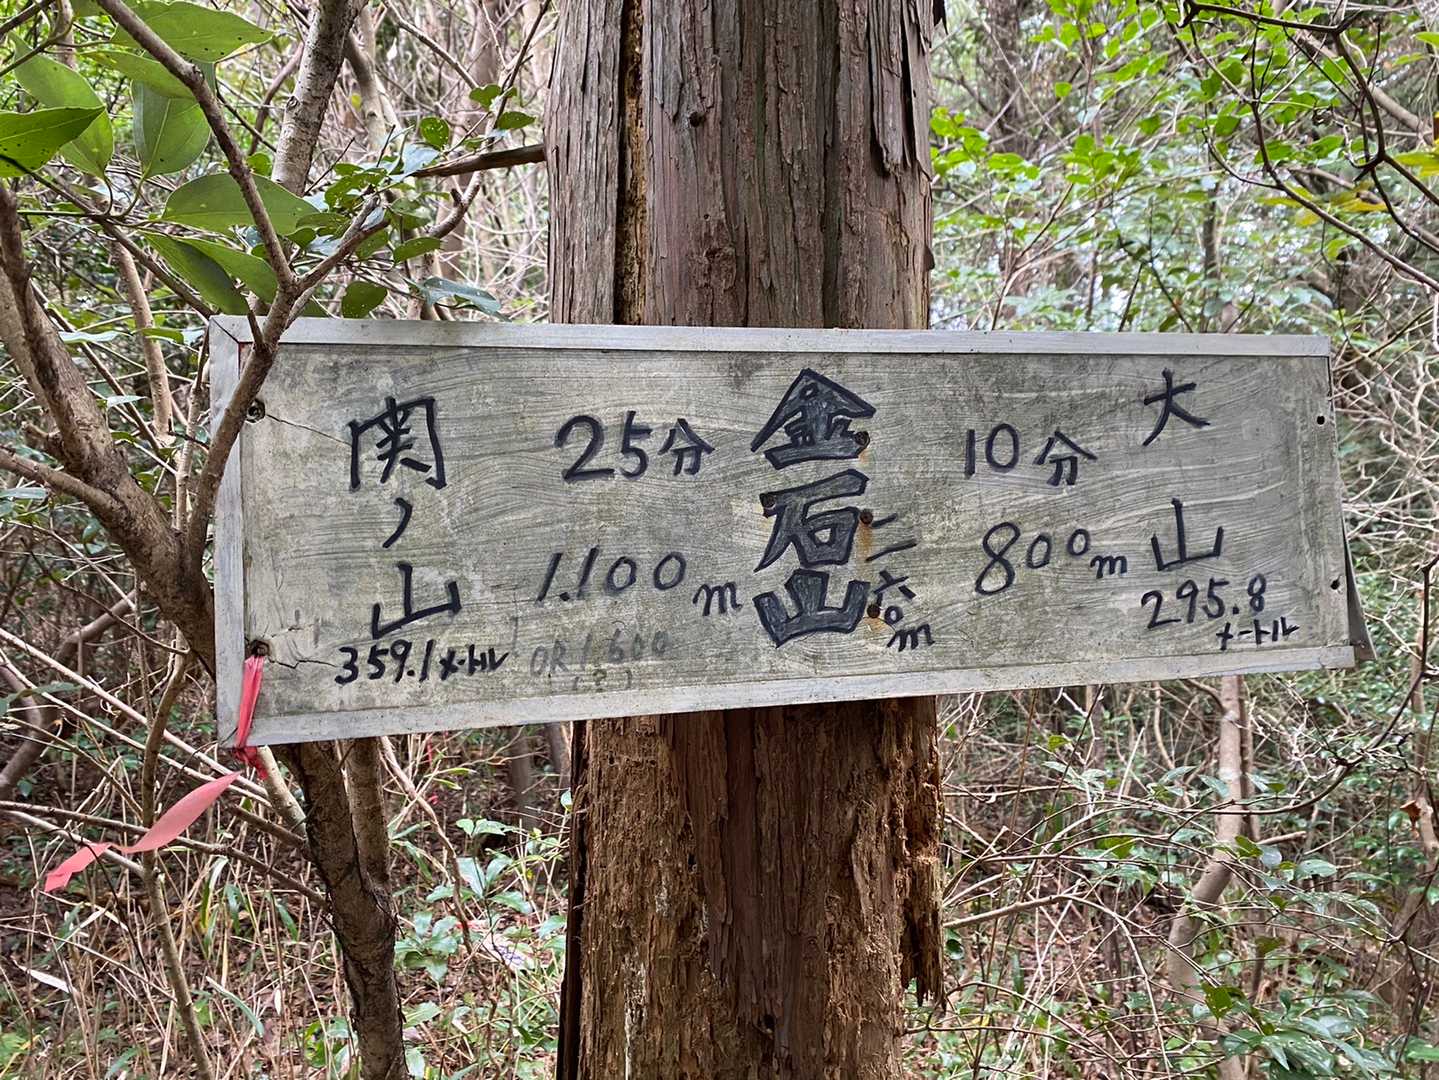 関ノ山
359.1メートル
25分
1.100m
OR 1.600
(?)
金石山
二六〇m
10分
800m
大山
295.8
メートル